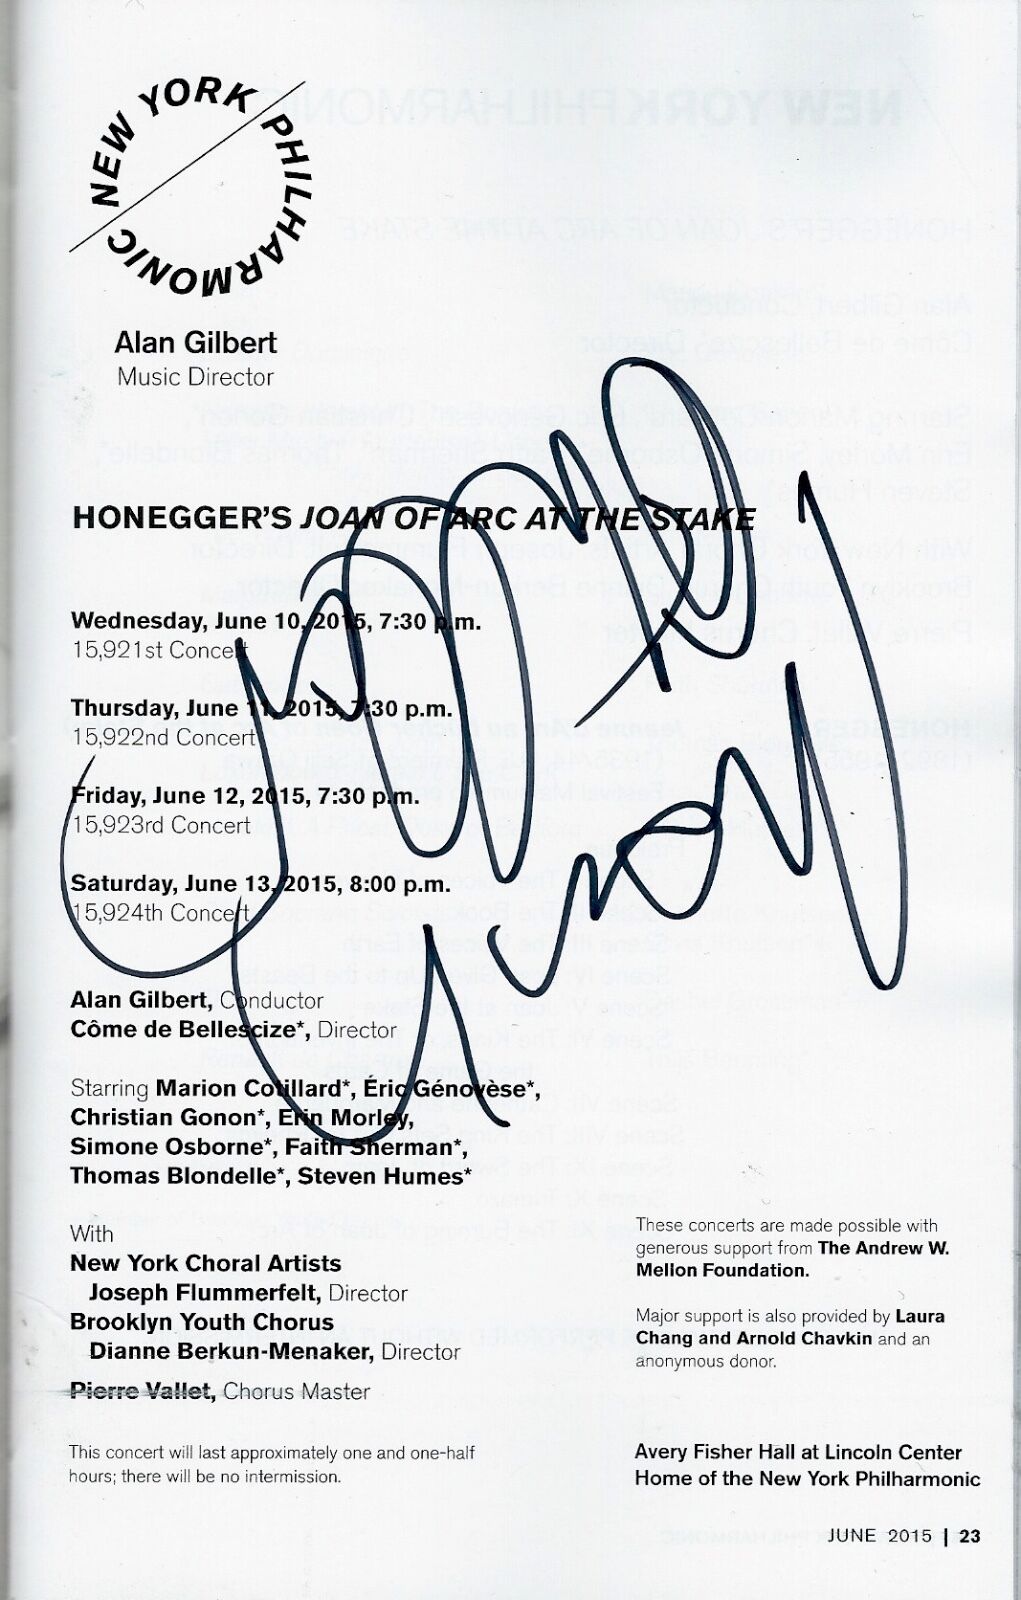 NEW YORK PHILHARMONIC
Alan Gilbert
Music Director
HONEGGER'S JOAN OF ARC AT THE STAKE
Wednesday, June 10, 2015, 7:30 p.m.
15,921st Concert
Thursday, June 11, 2015, 7:30 p.m.
15,922nd Concert
Friday, June 12, 2015, 7:30 p.m.
15,923rd Concert
Saturday, June 13, 2015, 8:00 p.m.
15,924th Concert
Alan Gilbert, Conductor
Côme de Bellescize*, Director
Starring Marion Cotillard*, Éric Génovèse*,
Christian Gonon*, Erin Morley,
Simone Osborne*, Faith Sherman*,
Thomas Blondelle*, Steven Humes*
With
New York Choral Artists
Joseph Flummerfelt, Director
Brooklyn Youth Chorus
Dianne Berkun-Menaker, Director
Pierre Vallet, Chorus Master
This concert will last approximately one and one-half
hours; there will be no intermission.
These concerts are made possible with
generous support from The Andrew W.
Mellon Foundation.
Major support is also provided by Laura
Chang and Arnold Chavkin and an
anonymous donor.
Avery Fisher Hall at Lincoln Center
Home of the New York Philharmonic
JUNE 2015 | 23